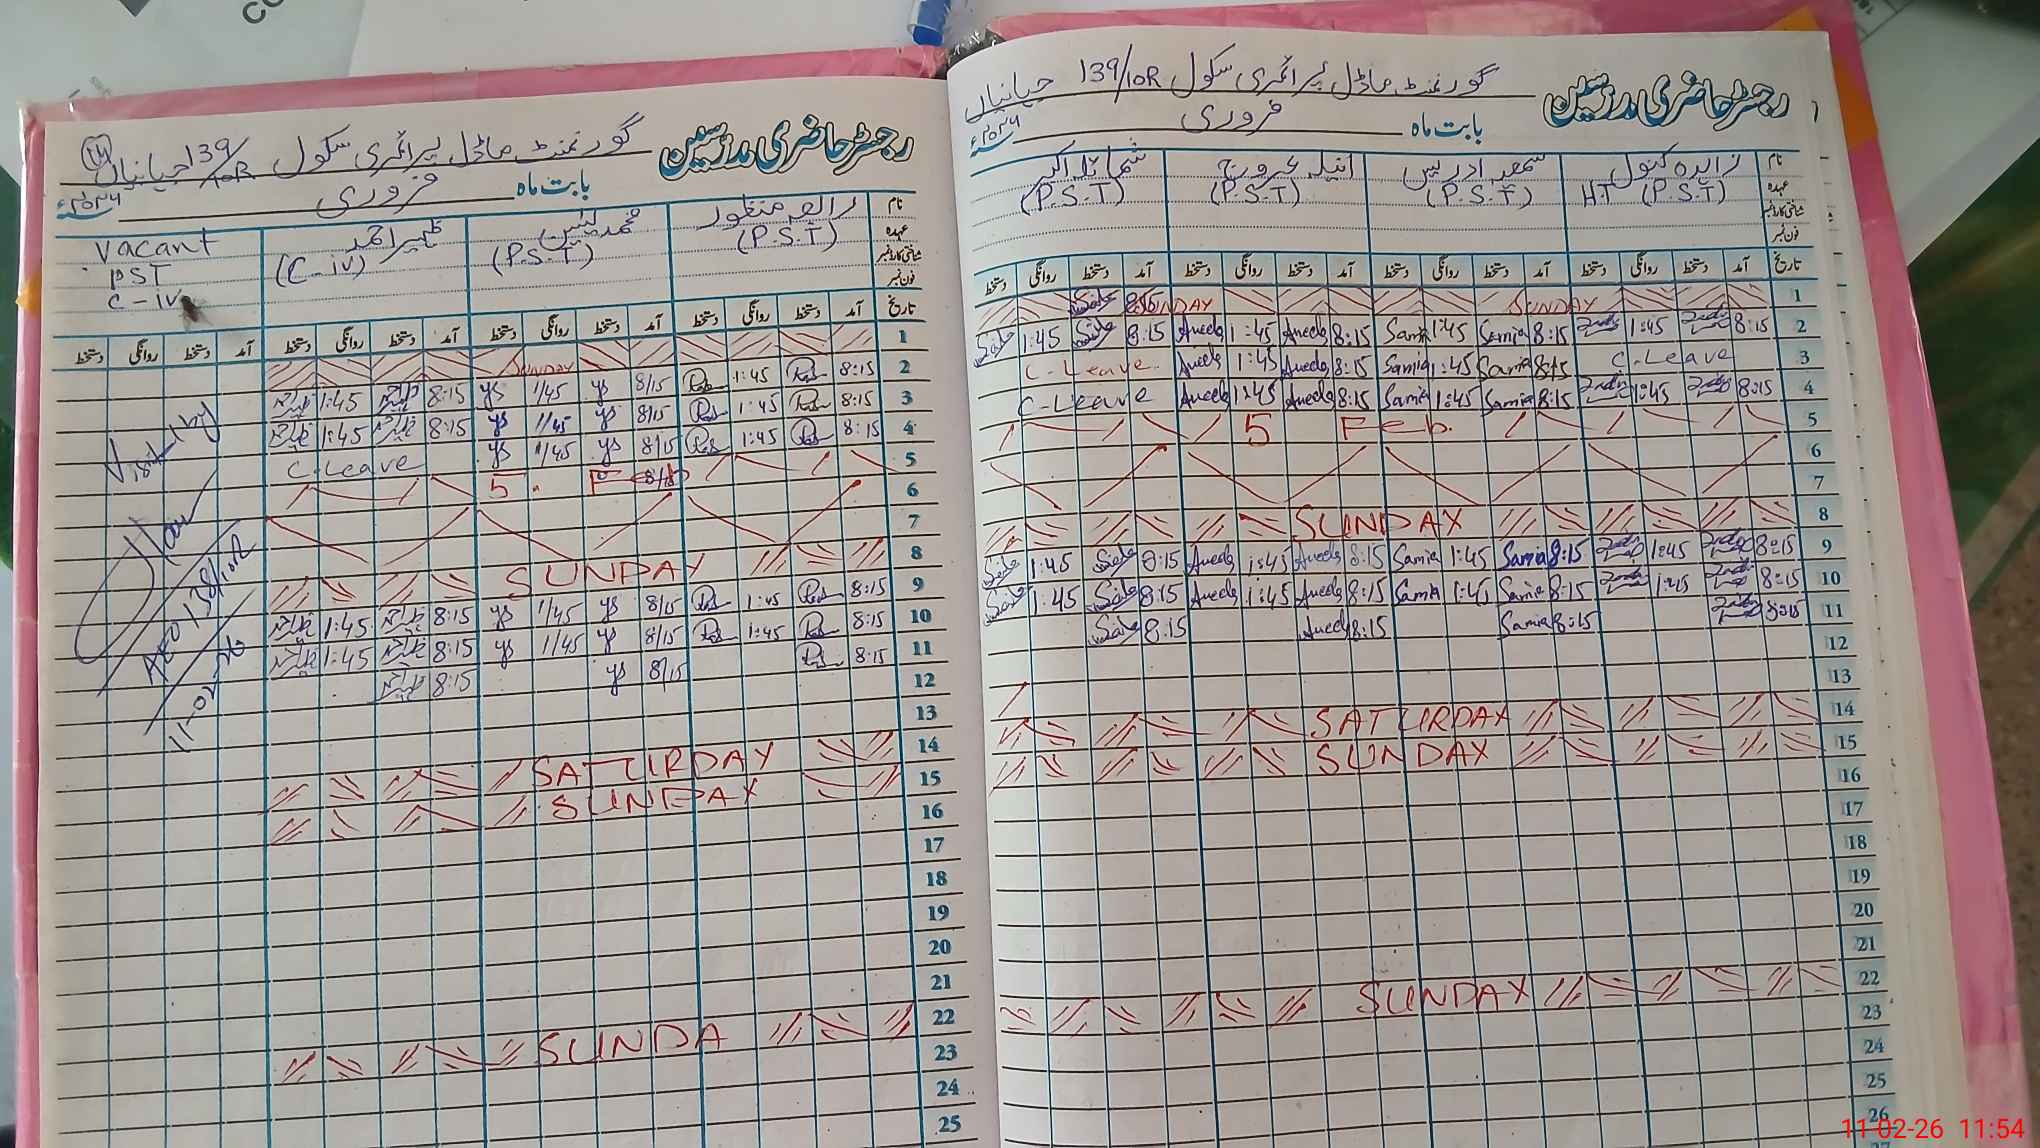 رجسٹر حاضری مدرسین گورنمنٹ ماڈل پرائمری سکول 139/10R جہانیاں
بابت ماہ فروری ۲۰۲۶ء
نام زاہدہ کنول سمعیہ ادریس انیلہ عروج شمائلہ اکبر
عہدہ H.T (P.S.T) (P.S.T) (P.S.T) (P.S.T)
شناختی کارڈ نمبر
فون نمبر
تاریخ آمد دستخط روانگی دستخط آمد دستخط روانگی دستخط آمد دستخط روانگی دستخط آمد دستخط روانگی دستخط
1 SUNDAY SUNDAY
2 8:15 1:45 8:15 Samia 1:45 Samia 8:15 Aneela 1:45 Aneela 8:15 1:45
3 C-Leave 8:15 Samia 1:45 Samia 8:15 Aneela 1:45 Aneela C-Leave
4 8:15 1:45 8:15 Samia 1:45 Samia 8:15 Aneela 1:45 Aneela C-Leave
5 5 Feb.
6
7
8 SUNDAY
9 8:15 1:45 8:15 Samia 1:45 Samia 8:15 Aneela 1:45 Aneela 8:15 1:45
10 8:15 1:45 8:15 Samia 1:45 Samia 8:15 Aneela 1:45 Aneela 8:15 1:45
11 8:15 8:15 Samia 8:15 Aneela 8:15
12
13
14 SATURDAY
15 SUNDAY
16
17
18
19
20
21
22 SUNDAY
23
24
25
26
رجسٹر حاضری مدرسین گورنمنٹ ماڈل پرائمری سکول 139/10R جہانیاں
بابت ماہ فروری ۲۰۲۶ء
نام رابعہ منظور محمد ظہیر احمد Vacant
عہدہ (P.S.T) (P.S.T) (C-iv) PST
شناختی کارڈ نمبر C-iv
فون نمبر
تاریخ آمد دستخط روانگی دستخط آمد دستخط روانگی دستخط آمد دستخط روانگی دستخط آمد دستخط روانگی دستخط
1 SUNDAY
2 8:15 1:45 8/15 ys 1/45 ys 8:15 ظہیر 1:45 ظہیر
3 8:15 1:45 8/15 ys 1/45 ys 8:15 ظہیر 1:45 ظہیر
4 8:15 1:45 8/15 ys 1/45 ys C-Leave
5 5. Feb
6
7
8 SUNDAY
9 8:15 1:45 8/15 ys 1/45 ys 8:15 ظہیر 1:45 ظہیر
10 8:15 1:45 8/15 ys 1/45 ys 8:15 ظہیر 1:45 ظہیر
11 8:15 8/15 ys 8:15 ظہیر
12
13
14 SATURDAY
15 SUNDAY
16
17
18
19
20
21
22 SUNDA
23
24
25
Visit by
AEO 138/10R
11-02-26
11-02-26 11:54